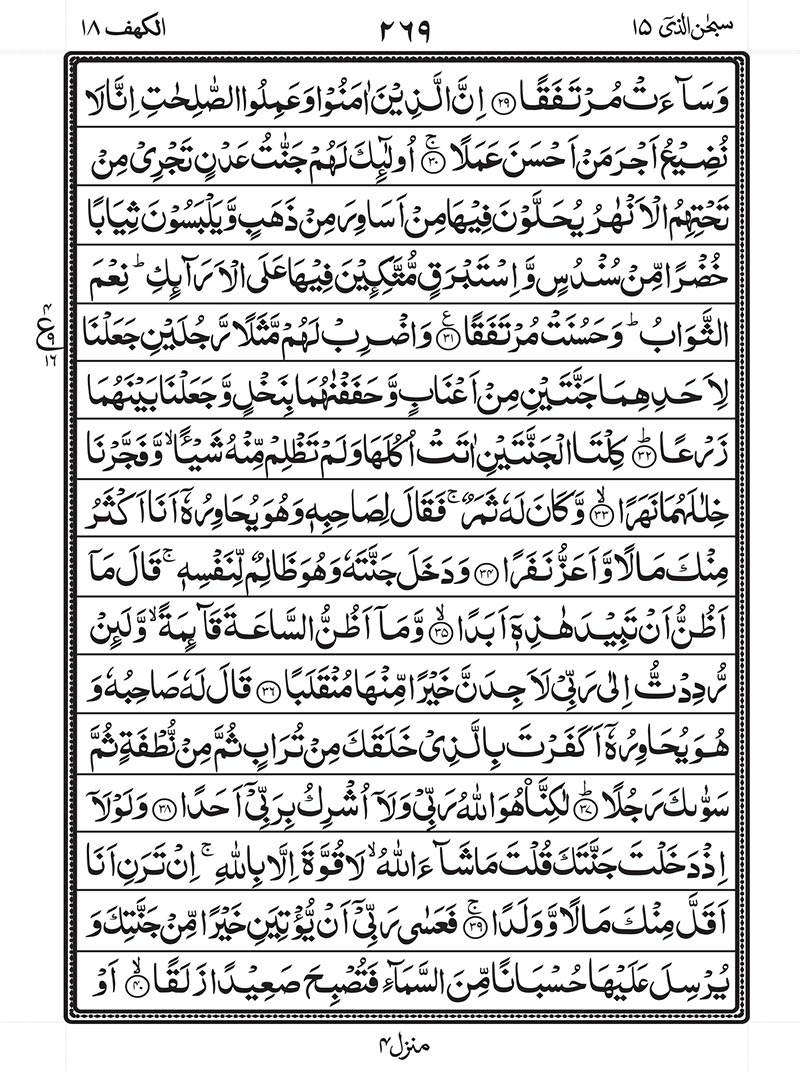 سبحٰن الذیٓ ۱۵
۲٦۹
الکهف ۱۸
وَسَآءَتۡ مُرۡتَفَقًا ﴿۲۹﴾ اِنَّ الَّذِیۡنَ اٰمَنُوۡا وَعَمِلُوا الصّٰلِحٰتِ اِنَّا لَا
نُضِیۡعُ اَجۡرَ مَنۡ اَحۡسَنَ عَمَلًا ﴿ۚ۳۰﴾ اُولٰٓئِکَ لَهُمۡ جَنّٰتُ عَدۡنٍ تَجۡرِیۡ مِنۡ
تَحۡتِهِمُ الۡاَنۡهٰرُ یُحَلَّوۡنَ فِیۡهَا مِنۡ اَسَاوِرَ مِنۡ ذَهَبٍ وَّیَلۡبَسُوۡنَ ثِیَابًا
خُضۡرًا مِّنۡ سُنۡدُسٍ وَّاِسۡتَبۡرَقٍ مُّتَّکِـِٕیۡنَ فِیۡهَا عَلَی الۡاَرَآئِکِ ؕ نِعۡمَ
الثَّوَابُ ؕ وَحَسُنَتۡ مُرۡتَفَقًا ﴿۳۱﴾ وَاضۡرِبۡ لَهُمۡ مَّثَلًا رَّجُلَیۡنِ جَعَلۡنَا
ع ۴ ۹ ۱٦
لِاَحَدِهِمَا جَنَّتَیۡنِ مِنۡ اَعۡنَابٍ وَّحَفَفۡنٰهُمَا بِنَخۡلٍ وَّجَعَلۡنَا بَیۡنَهُمَا
زَرۡعًا ﴿ؕ۳۲﴾ کِلۡتَا الۡجَنَّتَیۡنِ اٰتَتۡ اُکُلَهَا وَلَمۡ تَظۡلِمۡ مِّنۡهُ شَیۡـًٔا ۙ وَّفَجَّرۡنَا
خِلٰلَهُمَا نَهَرًا ﴿ۙ۳۳﴾ وَّکَانَ لَهٗ ثَمَرٌ ۚ فَقَالَ لِصَاحِبِهٖ وَهُوَ یُحَاوِرُهٗۤ اَنَا اَکۡثَرُ
مِنۡکَ مَالًا وَّاَعَزُّ نَفَرًا ﴿۳۴﴾ وَدَخَلَ جَنَّتَهٗ وَهُوَ ظَالِمٌ لِّنَفۡسِهٖ ۚ قَالَ مَاۤ
اَظُنُّ اَنۡ تَبِیۡدَ هٰذِهٖۤ اَبَدًا ﴿ۙ۳۵﴾ وَّمَاۤ اَظُنُّ السَّاعَةَ قَآئِمَةً ۙ وَّلَئِنۡ
رُّدِدۡتُّ اِلٰی رَبِّیۡ لَاَجِدَنَّ خَیۡرًا مِّنۡهَا مُنۡقَلَبًا ﴿۳٦﴾ قَالَ لَهٗ صَاحِبُهٗ وَ
هُوَ یُحَاوِرُهٗۤ اَکَفَرۡتَ بِالَّذِیۡ خَلَقَکَ مِنۡ تُرَابٍ ثُمَّ مِنۡ نُّطۡفَةٍ ثُمَّ
سَوّٰىکَ رَجُلًا ﴿ؕ۳۷﴾ لٰکِنَّا۠ هُوَ اللّٰهُ رَبِّیۡ وَلَاۤ اُشۡرِکُ بِرَبِّیۡۤ اَحَدًا ﴿۳۸﴾ وَلَوۡلَاۤ
اِذۡ دَخَلۡتَ جَنَّتَکَ قُلۡتَ مَا شَآءَ اللّٰهُ ۙ لَا قُوَّةَ اِلَّا بِاللّٰهِ ۚ اِنۡ تَرَنِ اَنَا
اَقَلَّ مِنۡکَ مَالًا وَّوَلَدًا ﴿ۚ۳۹﴾ فَعَسٰی رَبِّیۡۤ اَنۡ یُّؤۡتِیَنِ خَیۡرًا مِّنۡ جَنَّتِکَ وَ
یُرۡسِلَ عَلَیۡهَا حُسۡبَانًا مِّنَ السَّمَآءِ فَتُصۡبِحَ صَعِیۡدًا زَلَقًا ﴿ۙ۴۰﴾ اَوۡ
منزل ۴